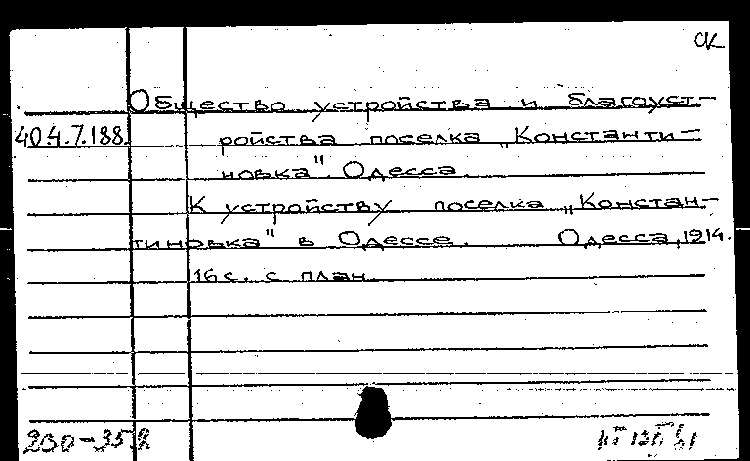 СК
Общество устройства и благоуст-
40.4.7.188. ройства поселка „Константи-
новка". Одесса.
К устройству поселка „Констан-
тиновка" в Одессе. Одесса, 1914.
16 с. с план.
230-35.2